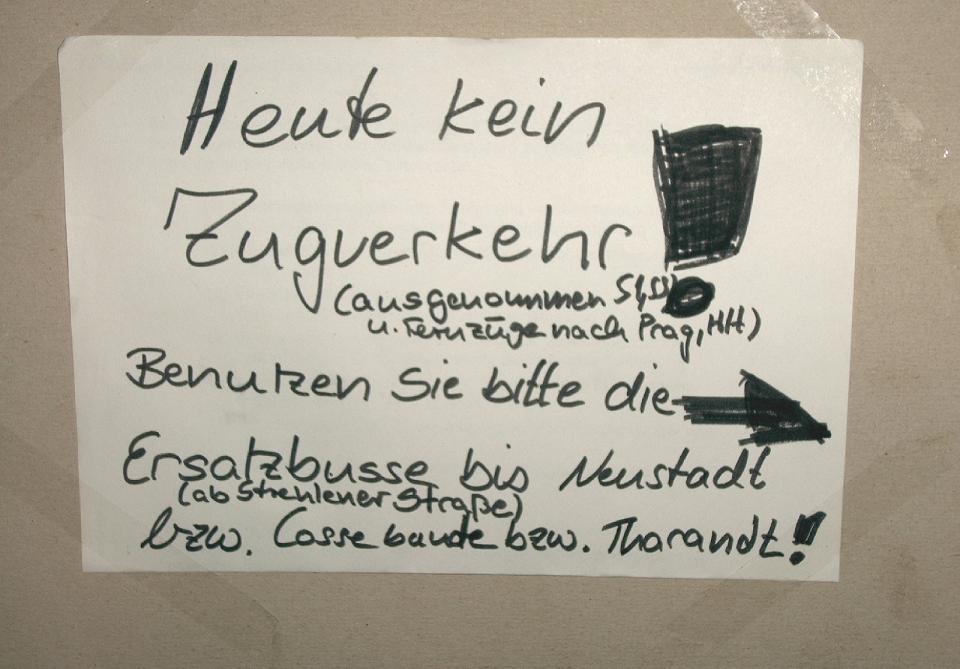 Heute kein
Zugverkehr!
(ausgenommen S1,
u. Fernzüge nach Prag, HH)
Benutzen Sie bitte die
Ersatzbusse bis Neustadt
(ab Strehlener Straße)
bzw. Cossebaude bzw. Tharandt!